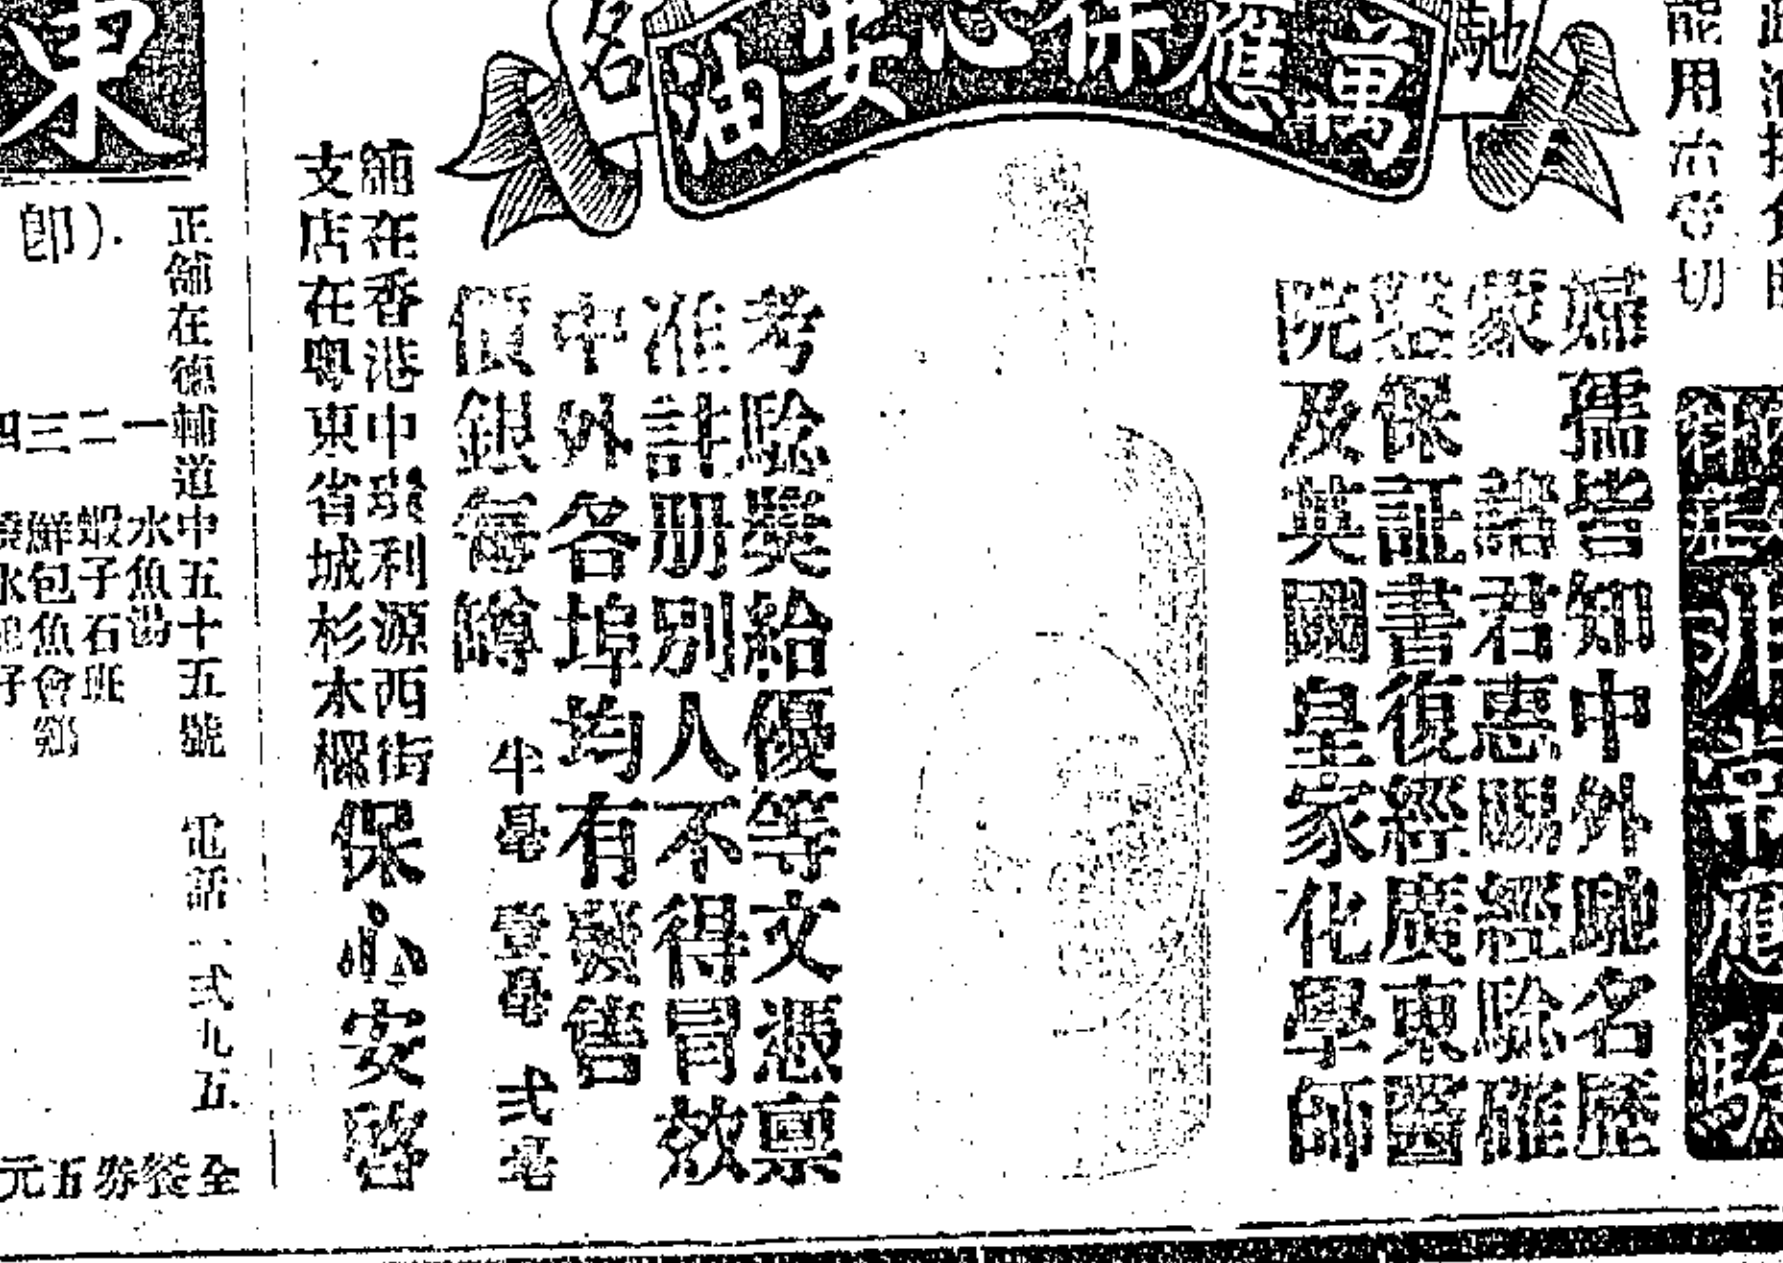 萬應保心安油
馳
名
能用治
切
婦孺皆知中外馳名歷
蒙 諸君惠賜經驗確
保証書復經廣東醫
院及英國皇家化學師
考驗奬給優等文憑禀
准註册別人不得冒效
中外名埠均有發售
價銀每罇 半毫 壹毫 弍毫
舖在香港中環利源西街
支店在粤東省城杉木欄
保心安啓
東
郎).
正舖在德輔道中五十五號 電話一弍九五
一 水魚湯
二 蝦子石班
三 鮮包魚會
四
全餐券五元